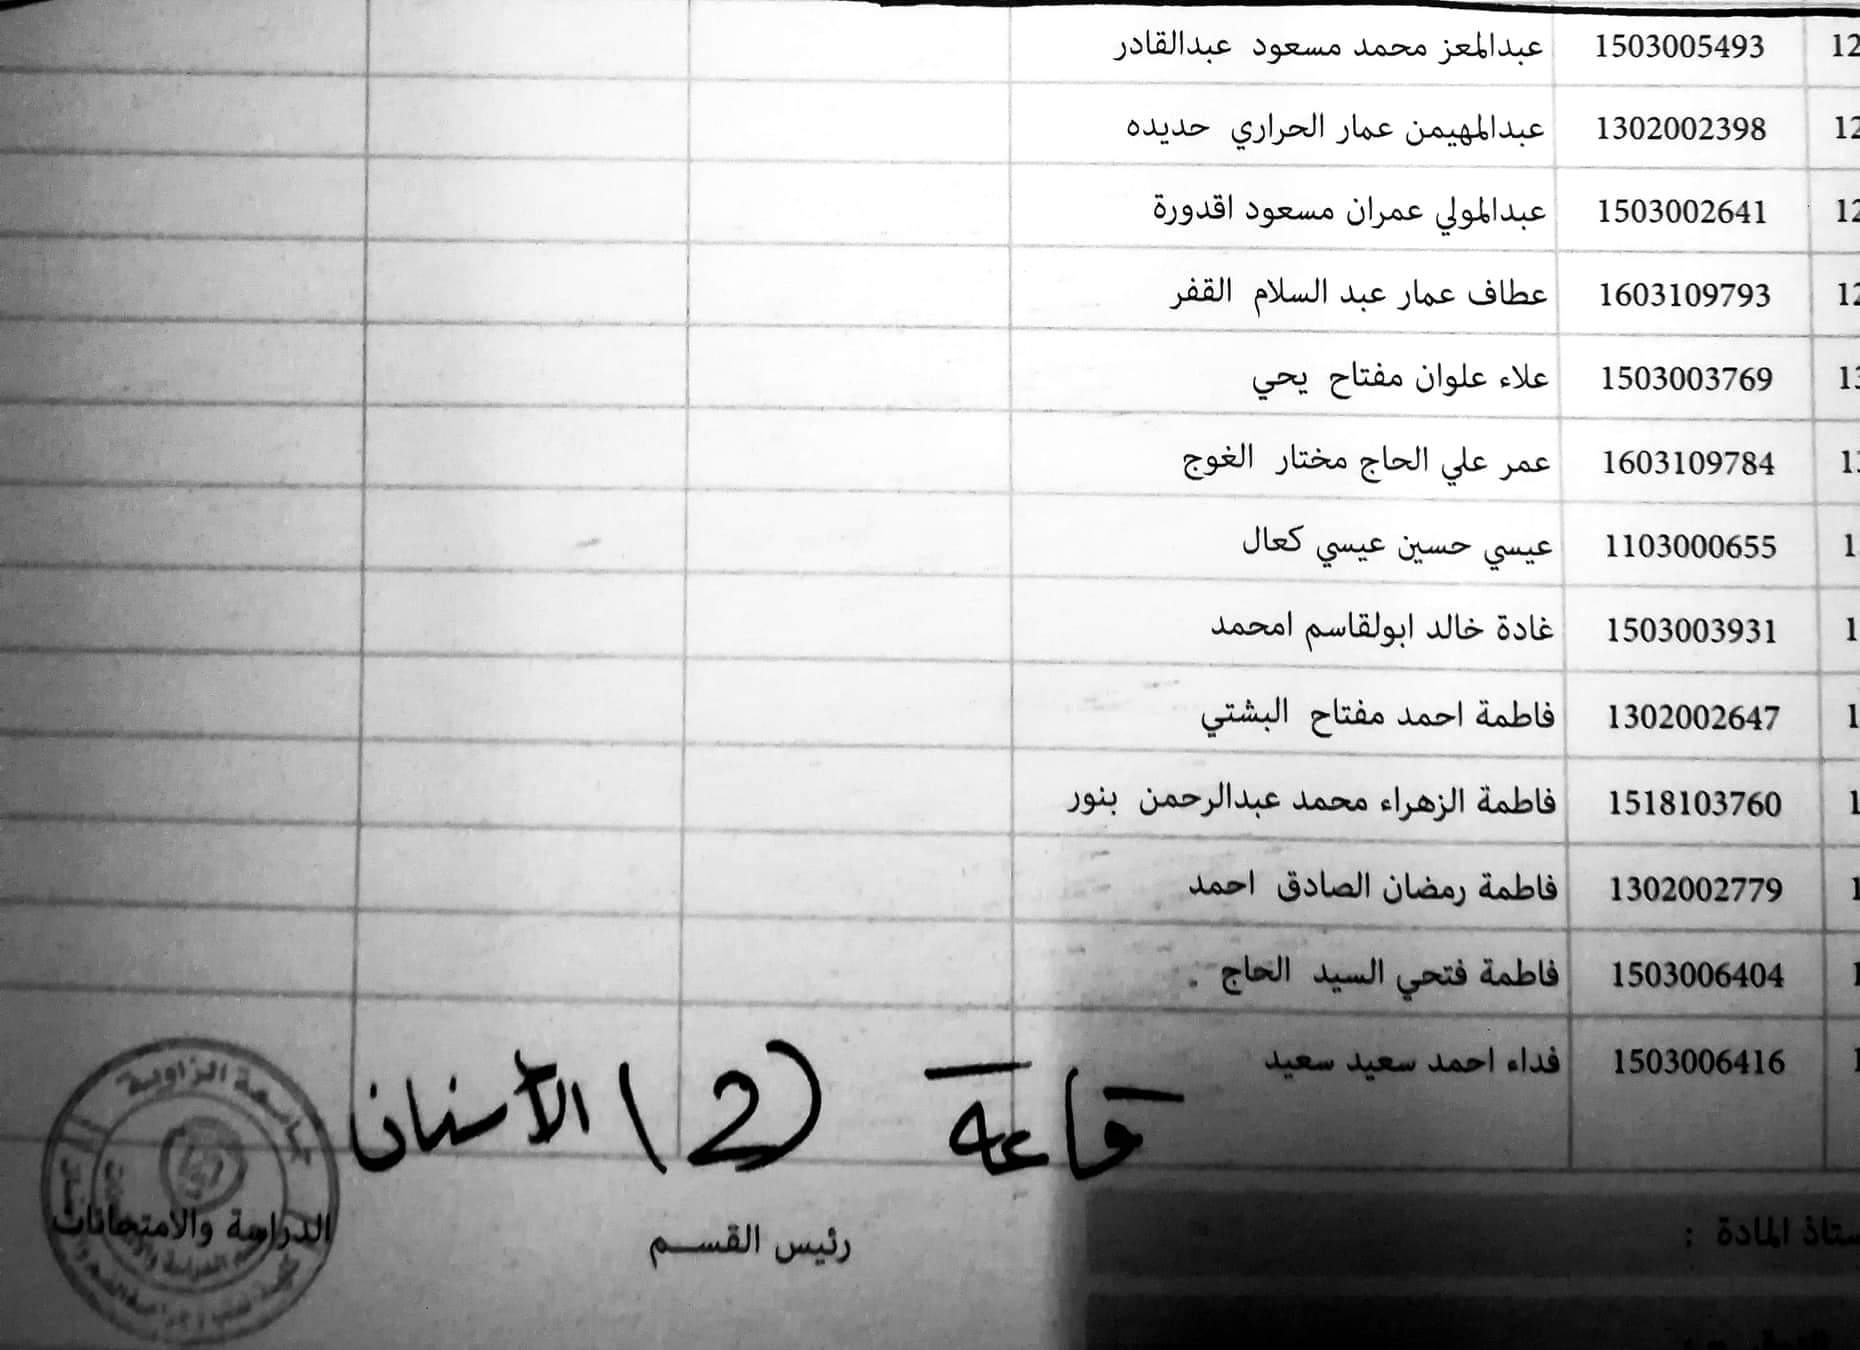 12 1503005493 عبدالمعز محمد مسعود عبدالقادر
12 1302002398 عبدالمهيمن عمار الحراري حديده
12 1503002641 عبدالمولي عمران مسعود اقدورة
12 1603109793 عطاف عمار عبد السلام القفر
13 1503003769 علاء علوان مفتاح يحي
13 1603109784 عمر علي الحاج مختار الغوج
1 1103000655 عيسي حسين عيسي كعال
1 1503003931 غادة خالد ابولقاسم امحمد
1 1302002647 فاطمة احمد مفتاح البشتي
1 1518103760 فاطمة الزهراء محمد عبدالرحمن بنور
1 1302002779 فاطمة رمضان الصادق احمد
1 1503006404 فاطمة فتحي السيد الحاج .
1 1503006416 فداء احمد سعيد سعيد
قاعة (2) الأسنان
جامعة الزاوية
ستاذ المادة :
رئيس القسم
الدراسة والامتحانات